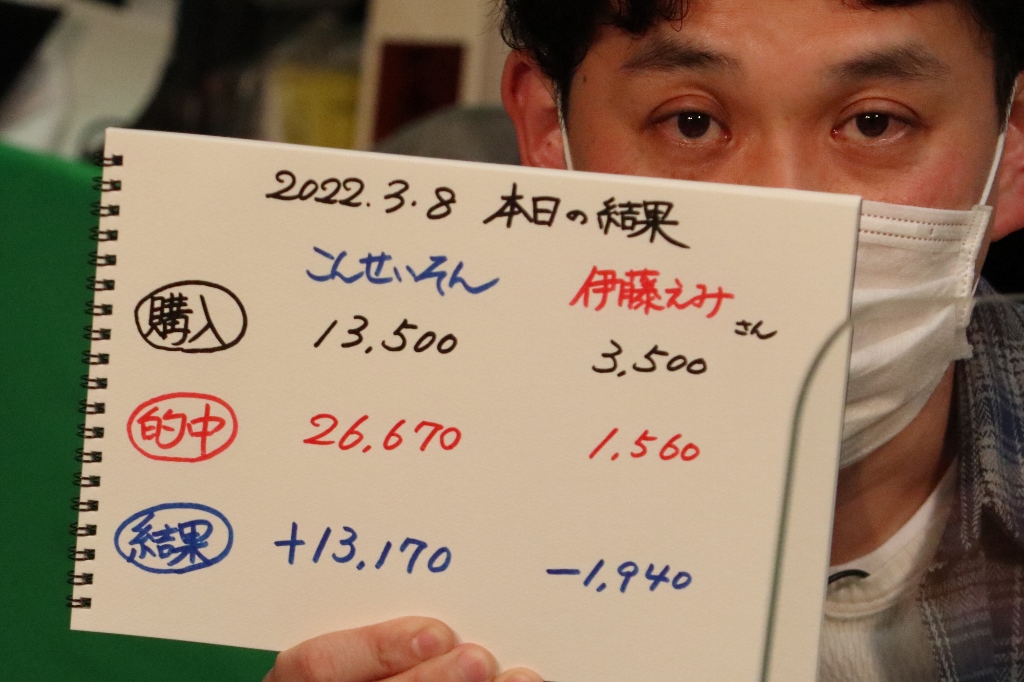 2022.3.8 本日の結果
こんせいそん 伊藤えみさん
購入 13,500 3,500
的中 26,670 1,560
結果 +13,170 -1,940